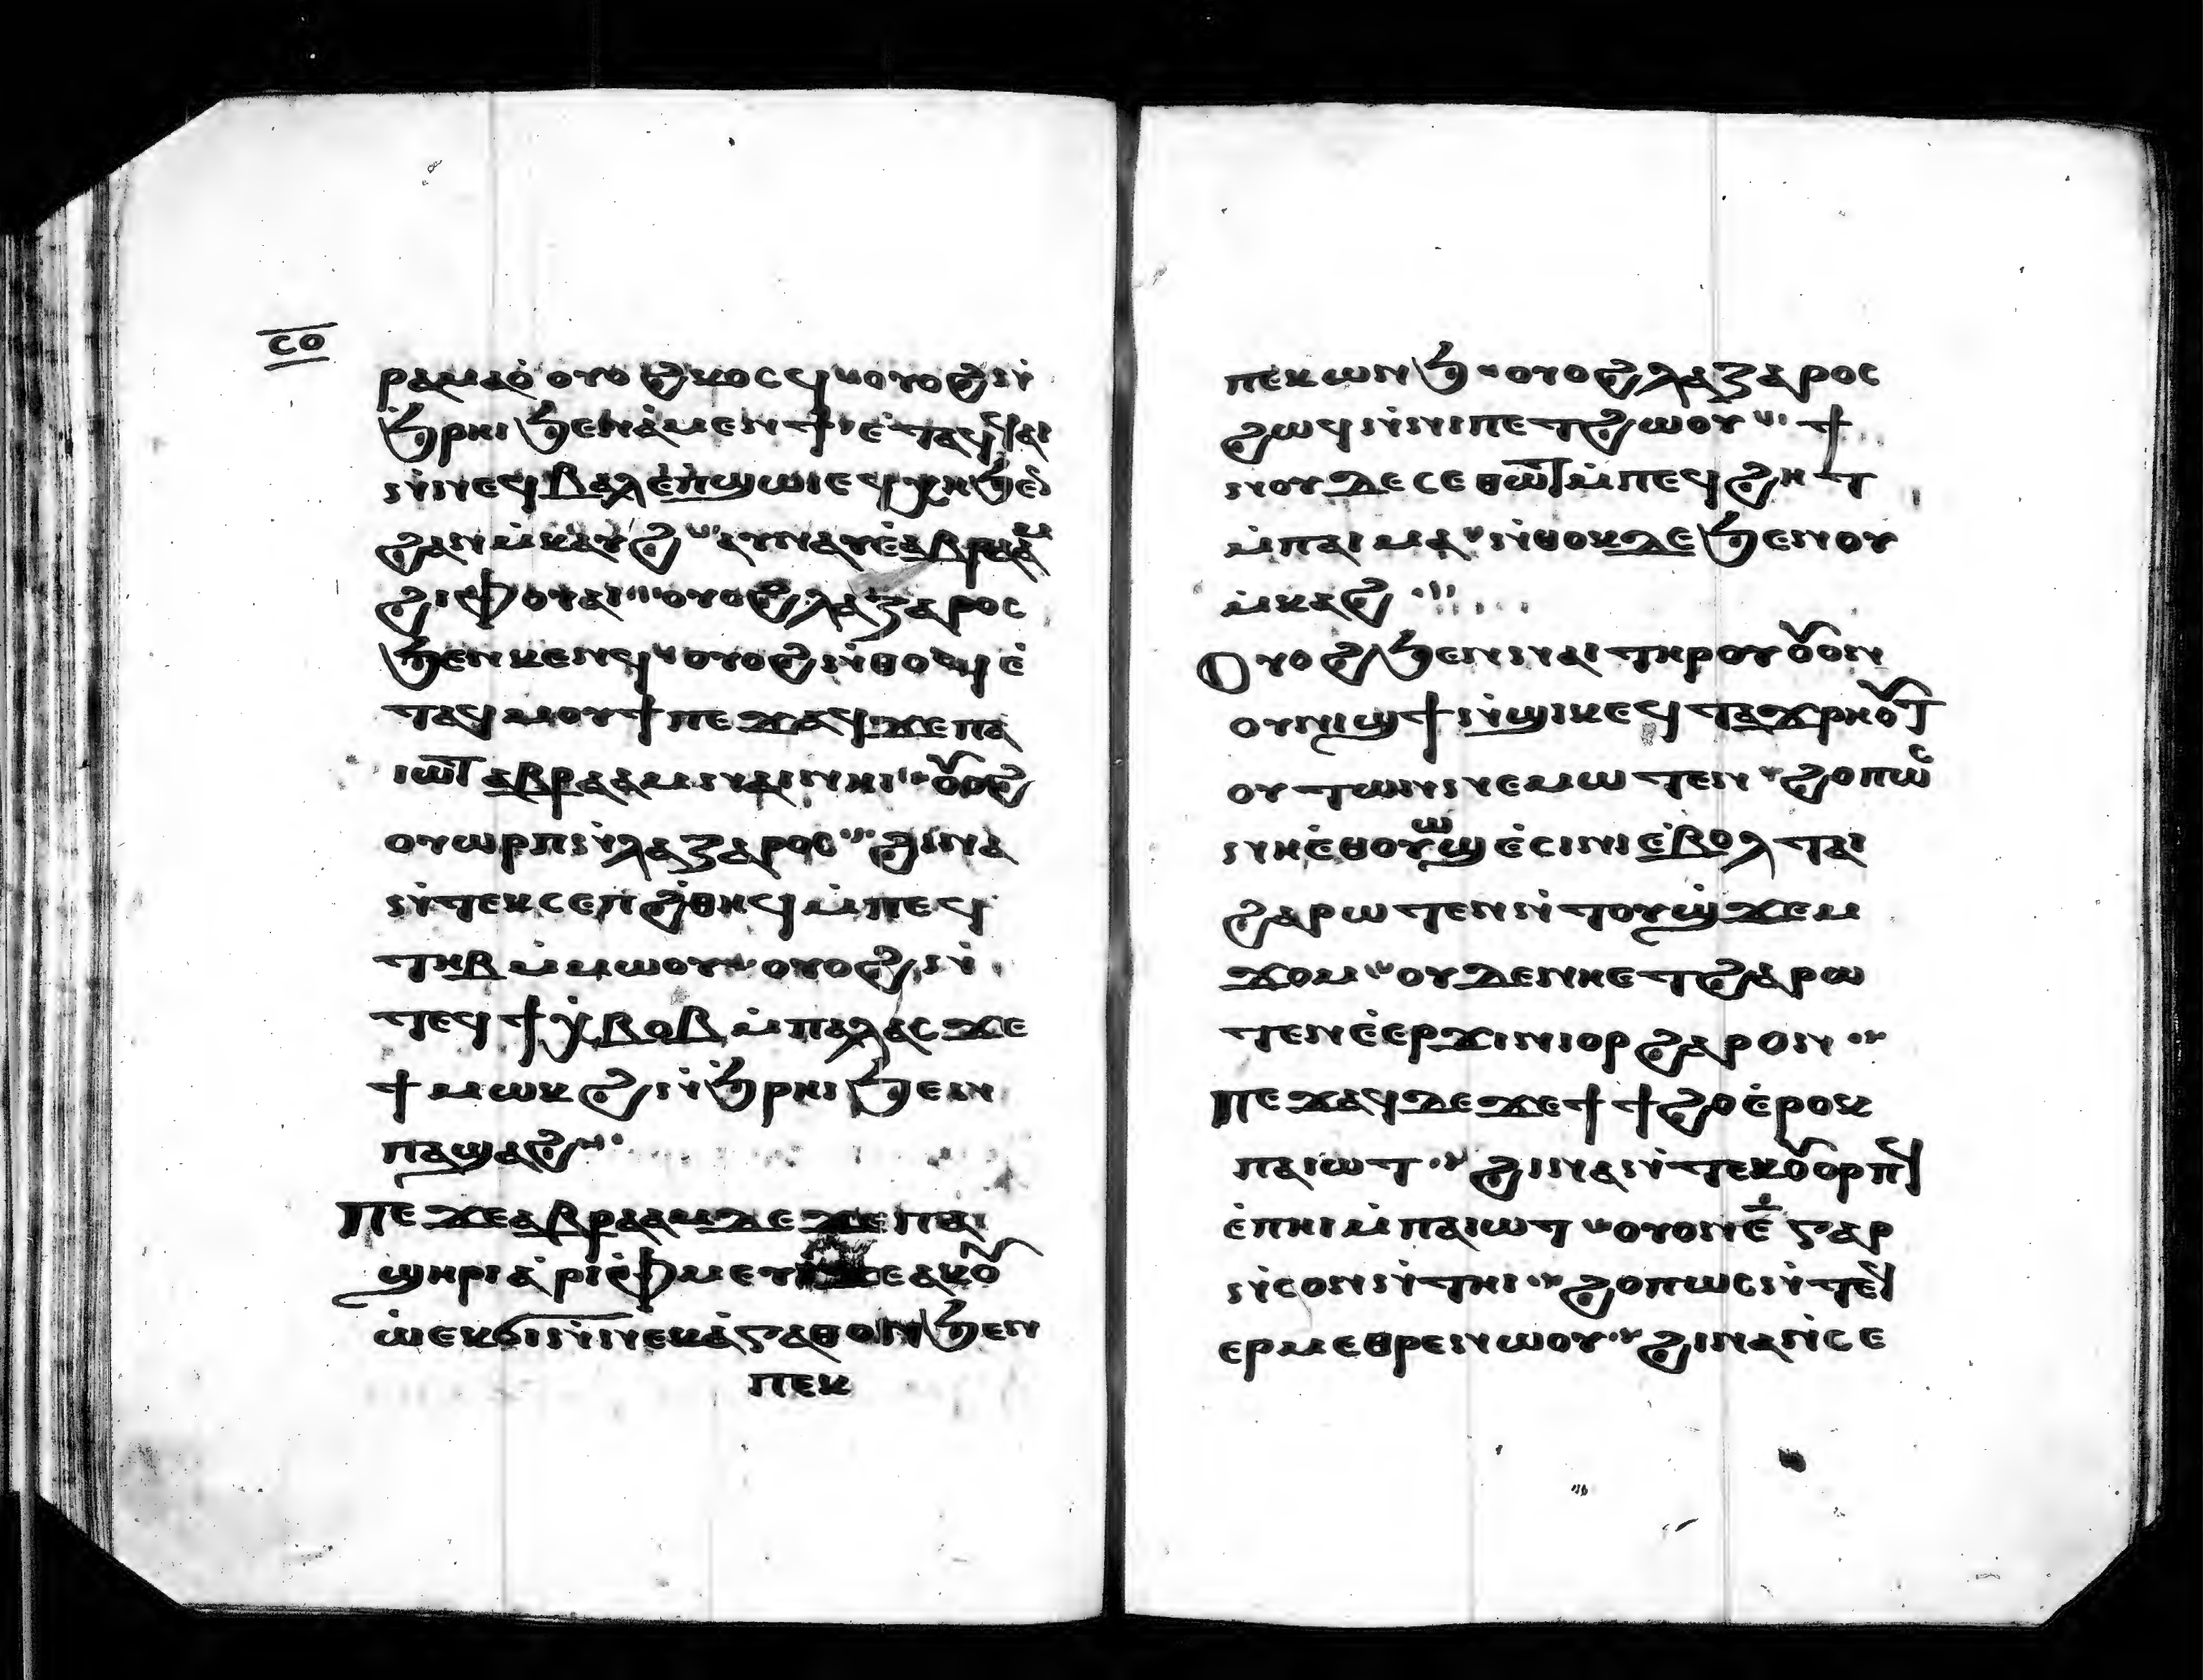 ⲥⲟ
ⲣⲁⲙⲁⲟ̀ ⲟⲩⲟϩ ⲕⲟⲥϥ ⲟⲩⲟϩ ⲛ̀
ϧ̀ⲣⲏⲓ ϧⲉⲛ ⲁ̀ⲙⲉⲛϯ ⲉ̀ⲧⲁϥϥⲁⲓ
ⲛ̀ⲛⲉϥⲃⲁⲗ ⲉ̀ⲡ̀ϣⲱⲓ ⲉϥⲭⲏ ϧⲉⲛ
ϩⲁⲛⲙ̀ⲕⲁⲩϩ ⲁϥⲛⲁⲩ ⲉ̀ⲁⲃⲣⲁⲁⲙ
ϩⲓⲫⲟⲩⲉⲓ ⲟⲩⲟϩ ⲗⲁⲍⲁⲣⲟⲥ
ϧⲉⲛ ⲕⲉⲛϥ ⲟⲩⲟϩ ⲛ̀ⲑⲟϥ ⲉ̀
ⲧⲁϥⲙⲟⲩϯ ⲡⲉϫⲁϥ ϫⲉ ⲡⲁ
ⲓⲱⲧ ⲁⲃⲣⲁⲁⲙ ⲛⲁⲓ ⲛⲏⲓ ⲟⲩⲟϩ
ⲟⲩⲱⲣⲡ ⲛ̀ⲗⲁⲍⲁⲣⲟⲥ ϩⲓⲛⲁ
ⲛ̀ⲧⲉϥⲥⲉⲡ ⲑⲏϥ ⲙ̀ⲡⲉϥ
ⲧⲏⲃ ⲙ̀ⲙⲱⲟⲩ ⲟⲩⲟϩ ⲛ̀
ⲧⲉϥϯⲭ̀ⲃⲟⲃ ⲙ̀ⲡⲁⲗⲁⲥ ϫⲉ
ϯⲙⲱⲕϩ ⲛ̀ϧ̀ⲣⲏⲓ ϧⲉⲛ
ⲡⲁϣⲁϩ
ⲡⲉϫⲉ ⲁⲃⲣⲁⲁⲙ ⲇⲉ ϫⲉ ⲡⲁ
ϣⲏⲣⲓ ⲁ̀ⲣⲓⲫ̀ⲙⲉⲩⲓ ϫⲉ ⲁⲕⲟⲩ
ⲱ ⲉⲕϭⲓ ⲛ̀ⲛⲉⲕⲁ̀ⲅⲁⲑⲟⲛ ϧⲉⲛ
ⲡⲉⲕ
ⲡⲉⲕⲱⲛϧ ⲟⲩⲟϩ ⲗⲁⲍⲁⲣⲟⲥ
ϩⲱϥ ⲛ̀ⲛⲓⲡⲉⲧϩⲱⲟⲩ ϯ
ⲛⲟⲩ ⲇⲉ ⲥⲉⲑⲱⲧ ⲙ̀ⲡⲉϥϩⲏⲧ
ⲙ̀ⲡⲁⲓⲙⲁ ⲛ̀ⲑⲟⲕ ⲇⲉ ϧⲉⲛ ⲟⲩ
ⲙ̀ⲕⲁϩ
ⲟⲩⲟϩ ϧⲉⲛ ⲛⲁⲓ ⲧⲏⲣⲟⲩ ⲟⲩⲟⲛ
ⲟⲩⲛⲓϣϯ ⲛ̀ϣⲓⲕ ⲉϥⲧⲁϫⲣⲏⲟⲩⲧ
ⲟⲩⲧⲱⲛ ⲛⲉⲙⲱⲧⲉⲛ ϩⲟⲡⲱⲥ
ⲛⲏⲉ̀ⲑⲟⲩⲱϣ ⲉ̀ⲥⲓⲛⲓ ⲉ̀ⲃⲟⲗ ⲧⲁⲓ
ϩⲁⲣⲱⲧⲉⲛ ⲛ̀ⲧⲟⲩϣ̀ϫⲉⲙ
ϫⲟⲙ ⲟⲩⲇⲉ ⲛⲏⲉⲧϩⲁⲣⲱ
ⲧⲉⲛ ⲉ̀ⲉⲣϫⲓⲛⲓⲟⲣ ϩⲁⲣⲟⲛ
ⲡⲉϫⲁϥ ⲇⲉ ϫⲉ ϯϯϩⲟ ⲉ̀ⲣⲟⲕ
ⲡⲁⲓⲱⲧ ϩⲓⲛⲁ ⲛ̀ⲧⲉⲕⲟⲩⲟⲣⲡϥ
ⲉ̀ⲡⲏⲓ ⲙ̀ⲡⲁⲓⲱⲧ ⲟⲩⲟⲛ ⲉ̅ ⲅⲁⲣ
ⲛ̀ⲥⲟⲛ ⲛ̀ⲧⲏⲓ ϩⲟⲡⲱⲥ ⲛ̀ⲧⲉϥ
ⲉⲣⲙⲉⲑⲣⲉ ⲛⲱⲟⲩ ϩⲓⲛⲁ ⲛ̀ⲥⲉ